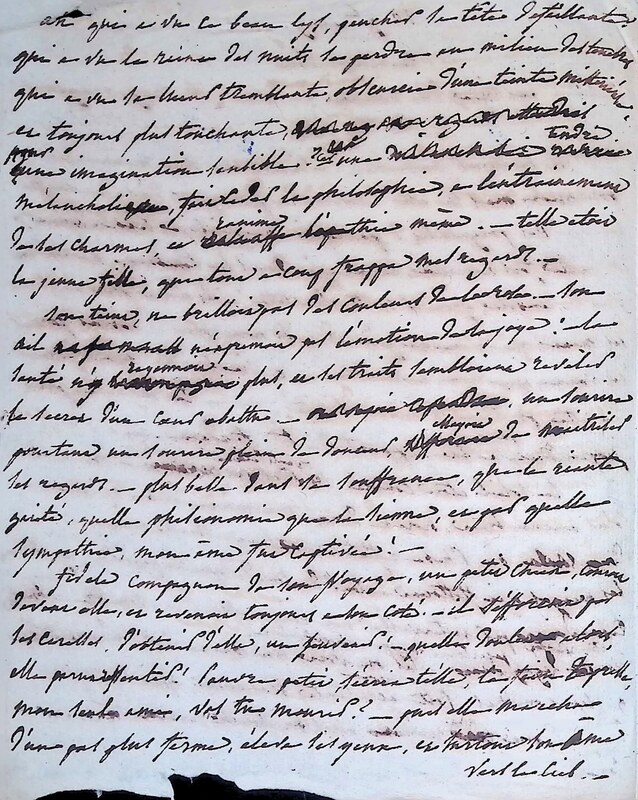 ah qui a vu ce beau lys, pencher la tête défaillante
qui a vu la reine des nuits se perdre au milieu des
qui a vu sa lueur tremblante, obscurcie d'une teinte
et toujours plus touchante,
tendre
une imagination sensible? d'une
mélancholique, fait céder la philosophie, a l'entrainement
ranime
de ses charmes, et l'apathie même. — telle etoit
la jeune fille, qui tout a coup frappa mes regards. —
son teint, ne brilloit pas des couleurs de la rose — son
œil n'exprimoit pas l'émotion de la joye: — la
rayonnoit
santé n'y plus, et ses traits sembloient reveler
le secret d'un cœur abattu — un sourire
pourtant un sourire plein de douceur, de maitriser
les regards — plus belle dans sa souffrance, que la riante
gaité, quelle phisionomie que la sienne, et par quelle
sympathie, mon âme fut captivée! —
fidele compagnon de son voyage, un petit chien, couroit
devant elle, et revenoit toujours a son coté. — il s'efforcoit par
ses caresses, d'obtenir d'elle, un souvenir! — quelle douleur alors,
elle parut sentir! pauvre petit
mon seul ami, vas tu mourir? — puis elle marcha
d'un pas plus ferme, éleva les yeux, et surtout son âme
vers le ciel. —